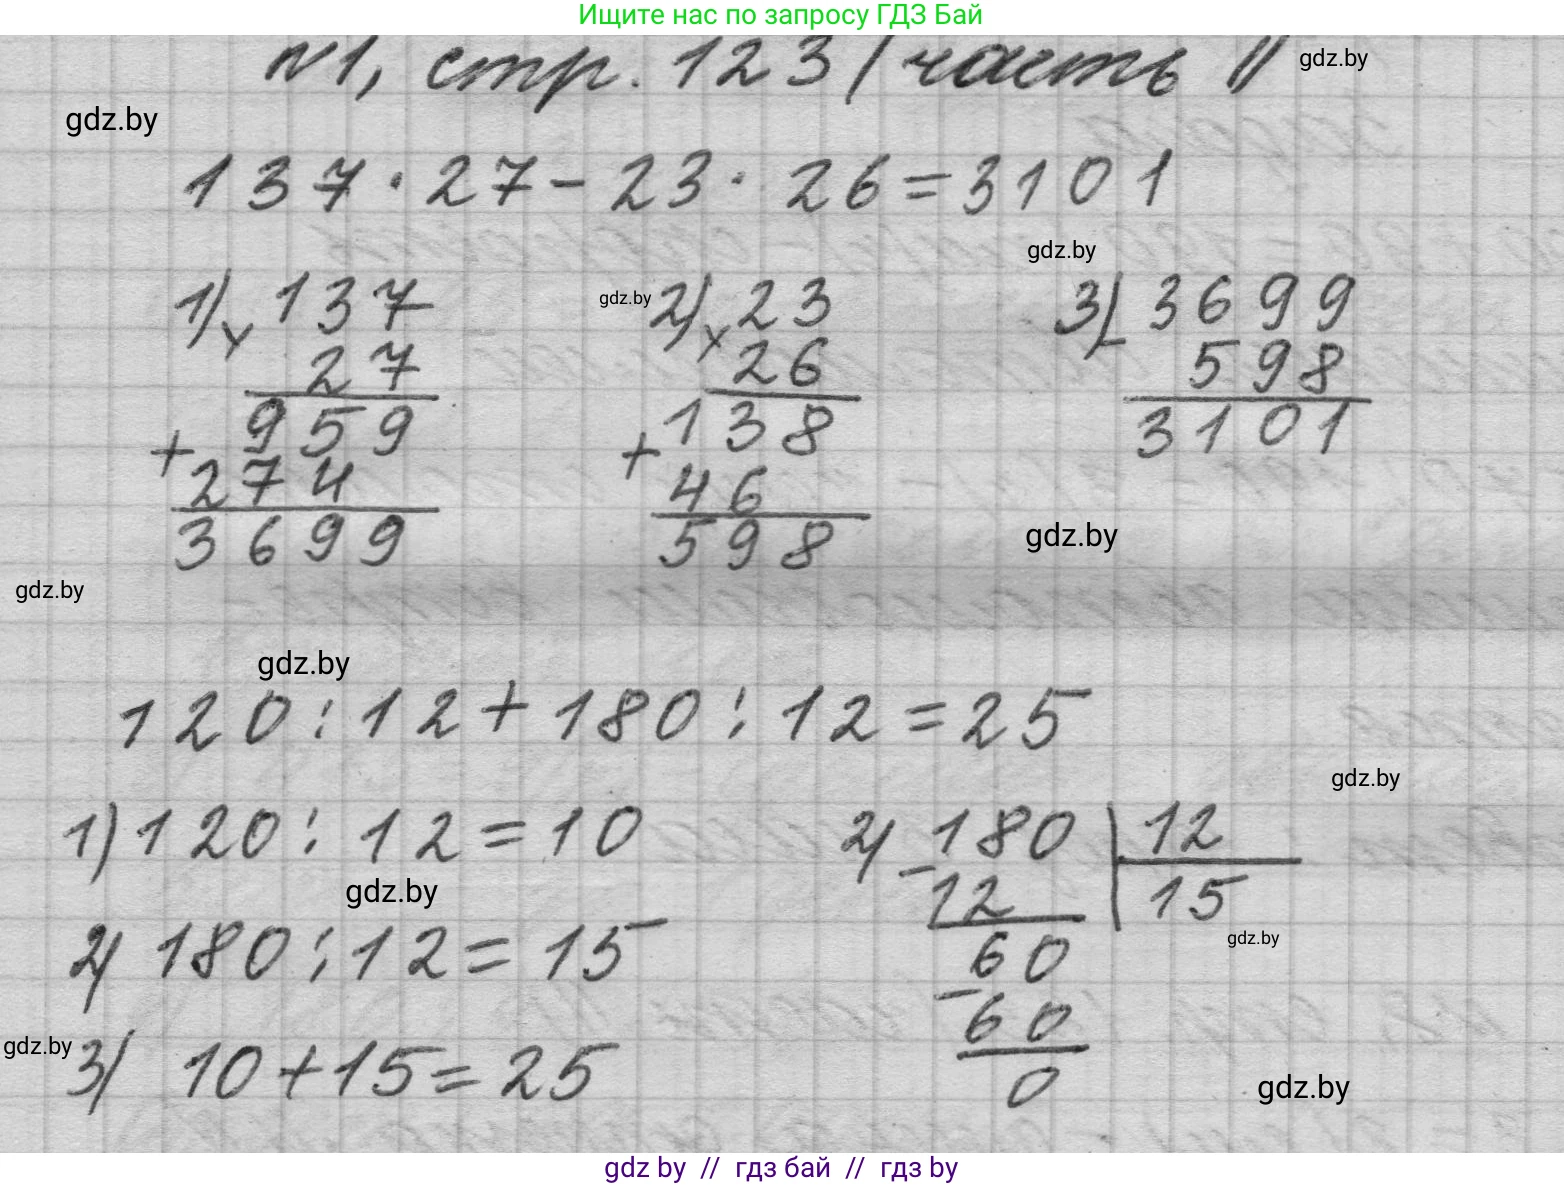 Ищите нас по запросу ГДЗ Бай
№1, стр. 123 / часть II
gdz.by
gdz.by
137 · 27 - 23 · 26 = 3101
gdz.by
1) × 137
27
+ 959
274
3699
gdz.by
2) × 23
26
+ 138
46
598
3) - 3699
598
3101
gdz.by
gdz.by
gdz.by
120 : 12 + 180 : 12 = 25
gdz.by
1) 120 : 12 = 10
gdz.by
2) 180 : 12 = 15
gdz.by
3) 10 + 15 = 25
2) - 180 | 12
12 | 15
gdz.by
60
- 60
0
gdz.by
gdz by // гдз бай // гдз by